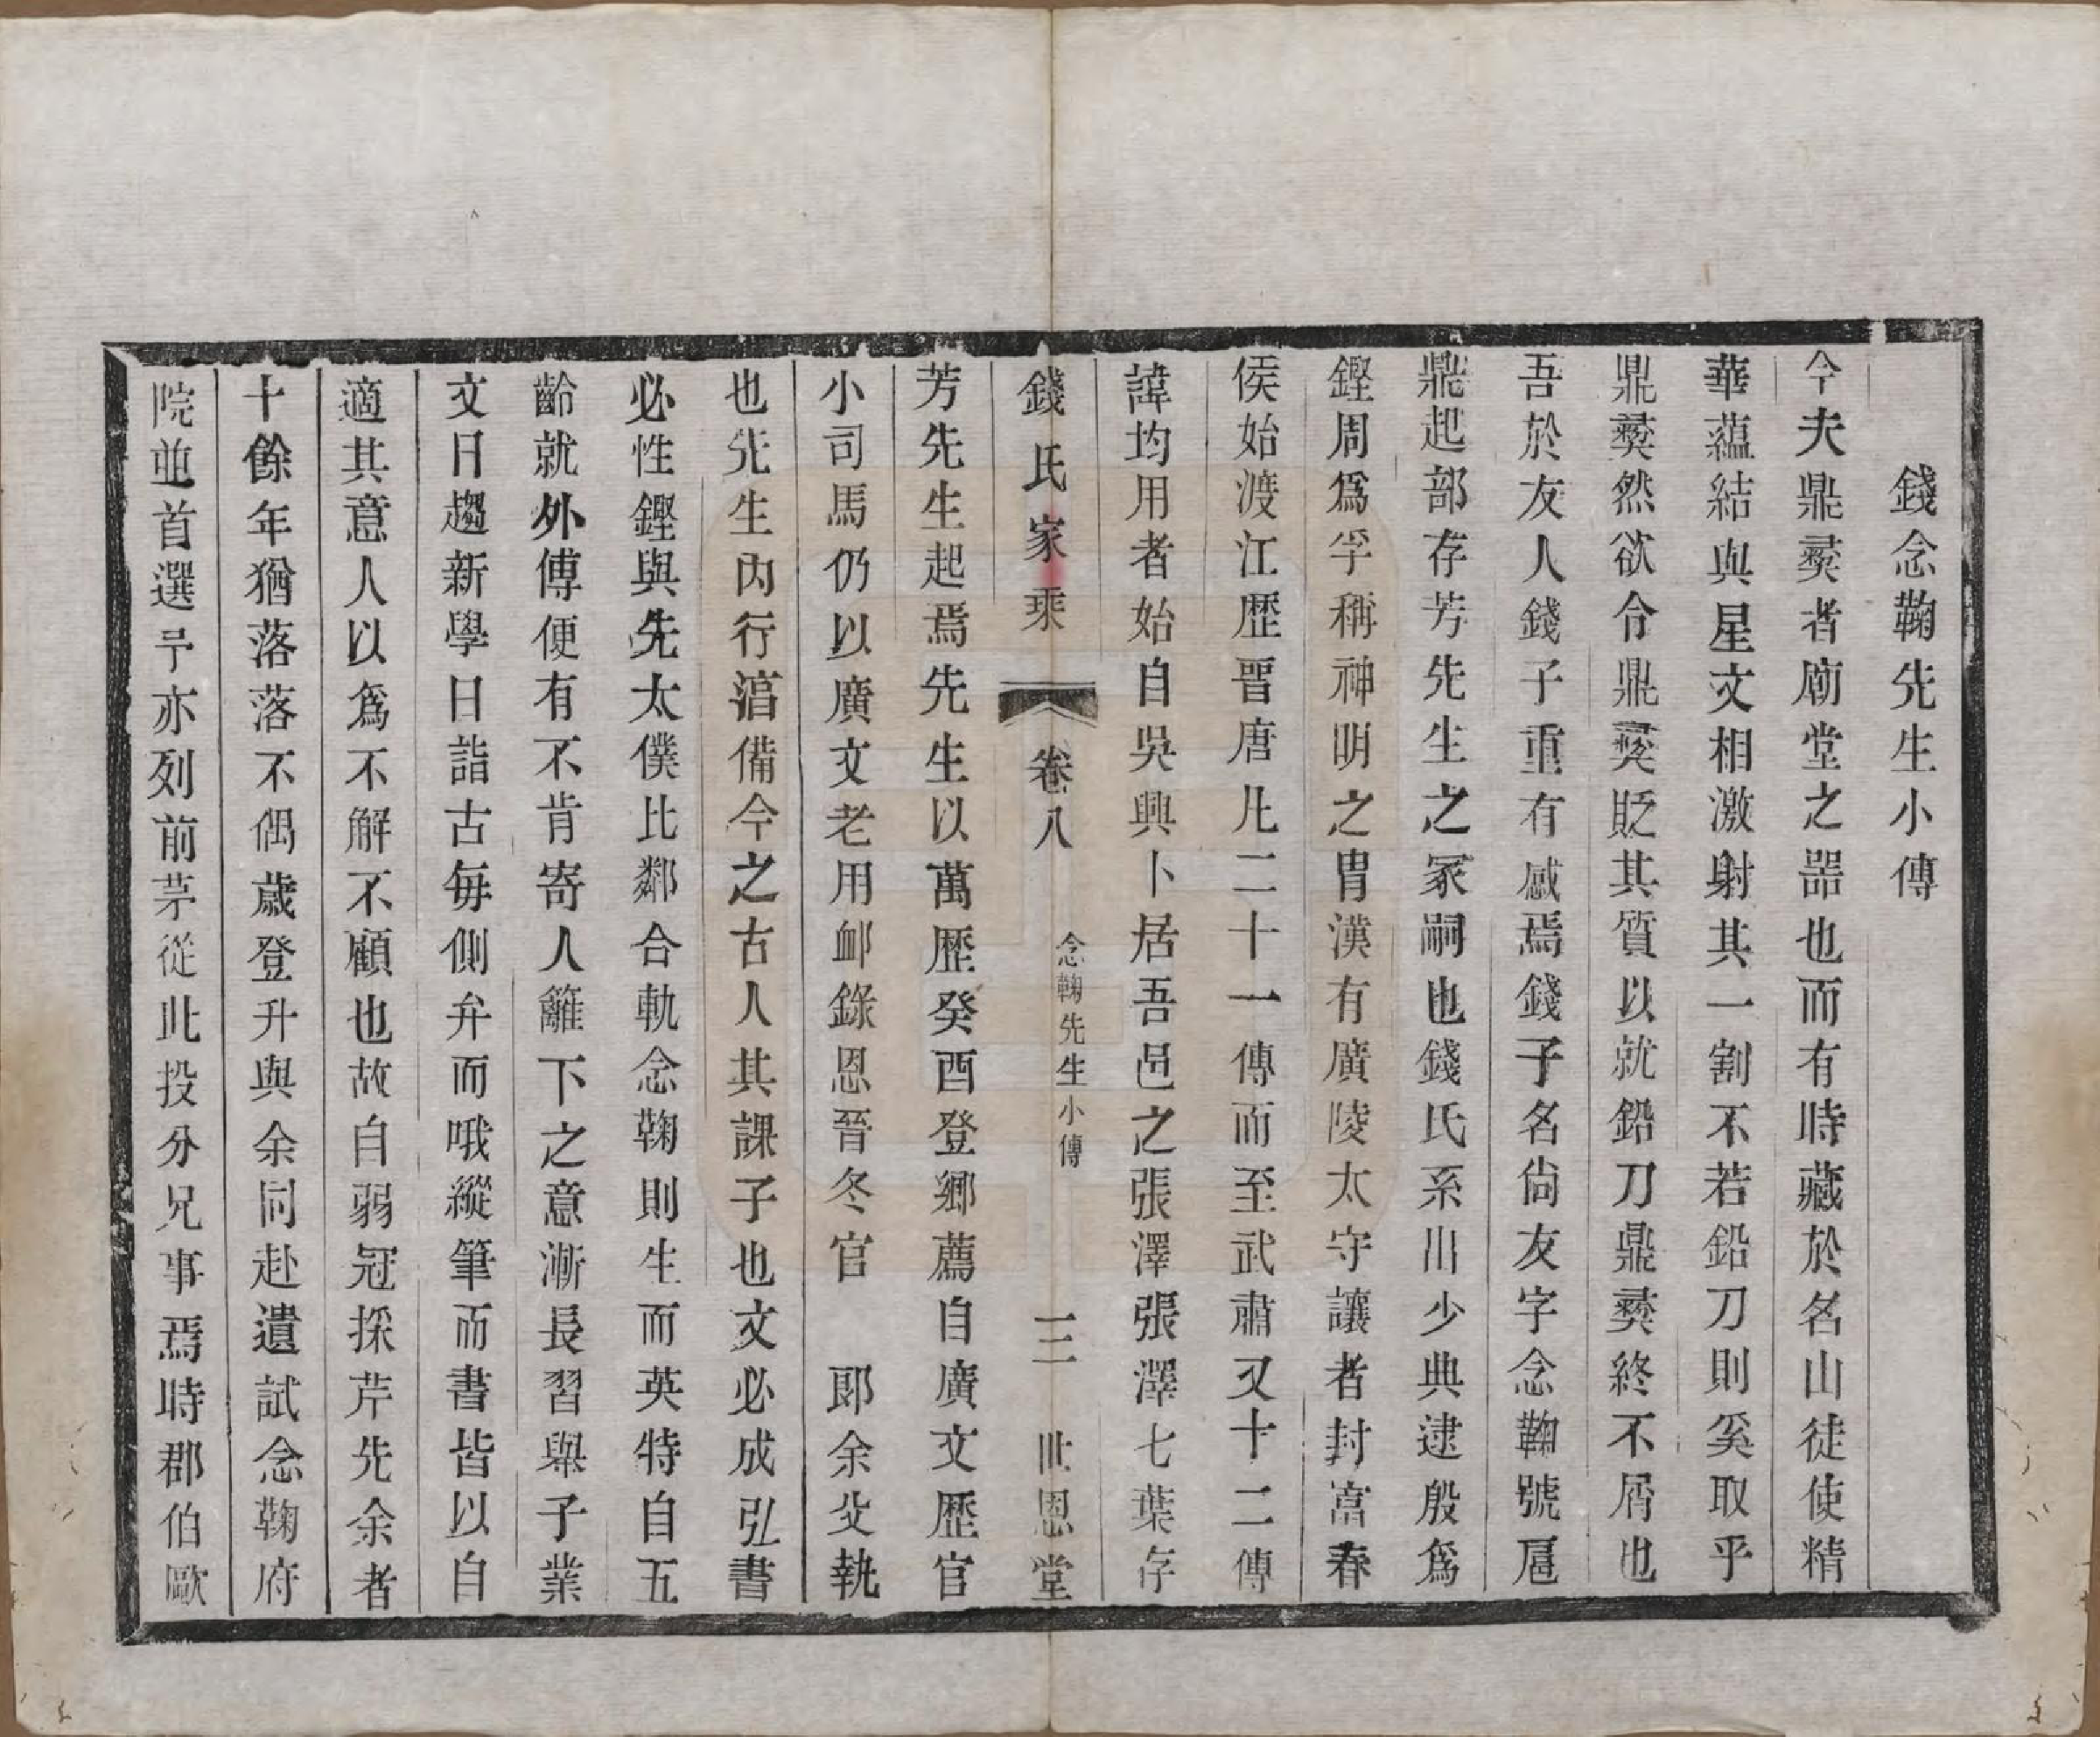 錢念鞠先生小傳
今夫鼎彛者廟堂之噐也而有時藏於名山徒使精
華蘊結與星文相激射其一割不若鉛刀則奚取乎
鼎彛然欲令鼎彛貶其質以就鉛刀鼎彛終不屑也
吾於友人錢子重有感焉錢子名尙友字念鞠號扈
鼎起部存芳先生之冡嗣也錢氏系出少典逮殷爲
鏗周爲孚稱神明之胄漢有廣陵太守讓者封富春
侯始渡江歷晋唐凡二十一傳而至武肅又十二傳
諱均用者始自吳興卜居吾邑之張澤張澤七葉存
錢氏家乘 卷八 念鞠先生小傳 三 世恩堂
芳先生起焉先生以萬歷癸酉登鄉薦自廣文歷官
小司馬仍以廣文老用䘏錄恩晉冬官 郎余父執
也先生內行湻備今之古人其課子也文必成弘書
必性鏗與先太僕比鄰合軌念鞠則生而英特自五
齡就外傅便有不肯寄人籬下之意漸長習舉子業
文日趨新學日詣古每側弁而哦縱筆而書皆以自
適其意人以爲不解不顧也故自弱冠採芹先余者
十餘年猶落落不偶歲登升與余同赴遺試念鞠府
院並首選予亦列前茅從此投分兄事焉時郡伯歐